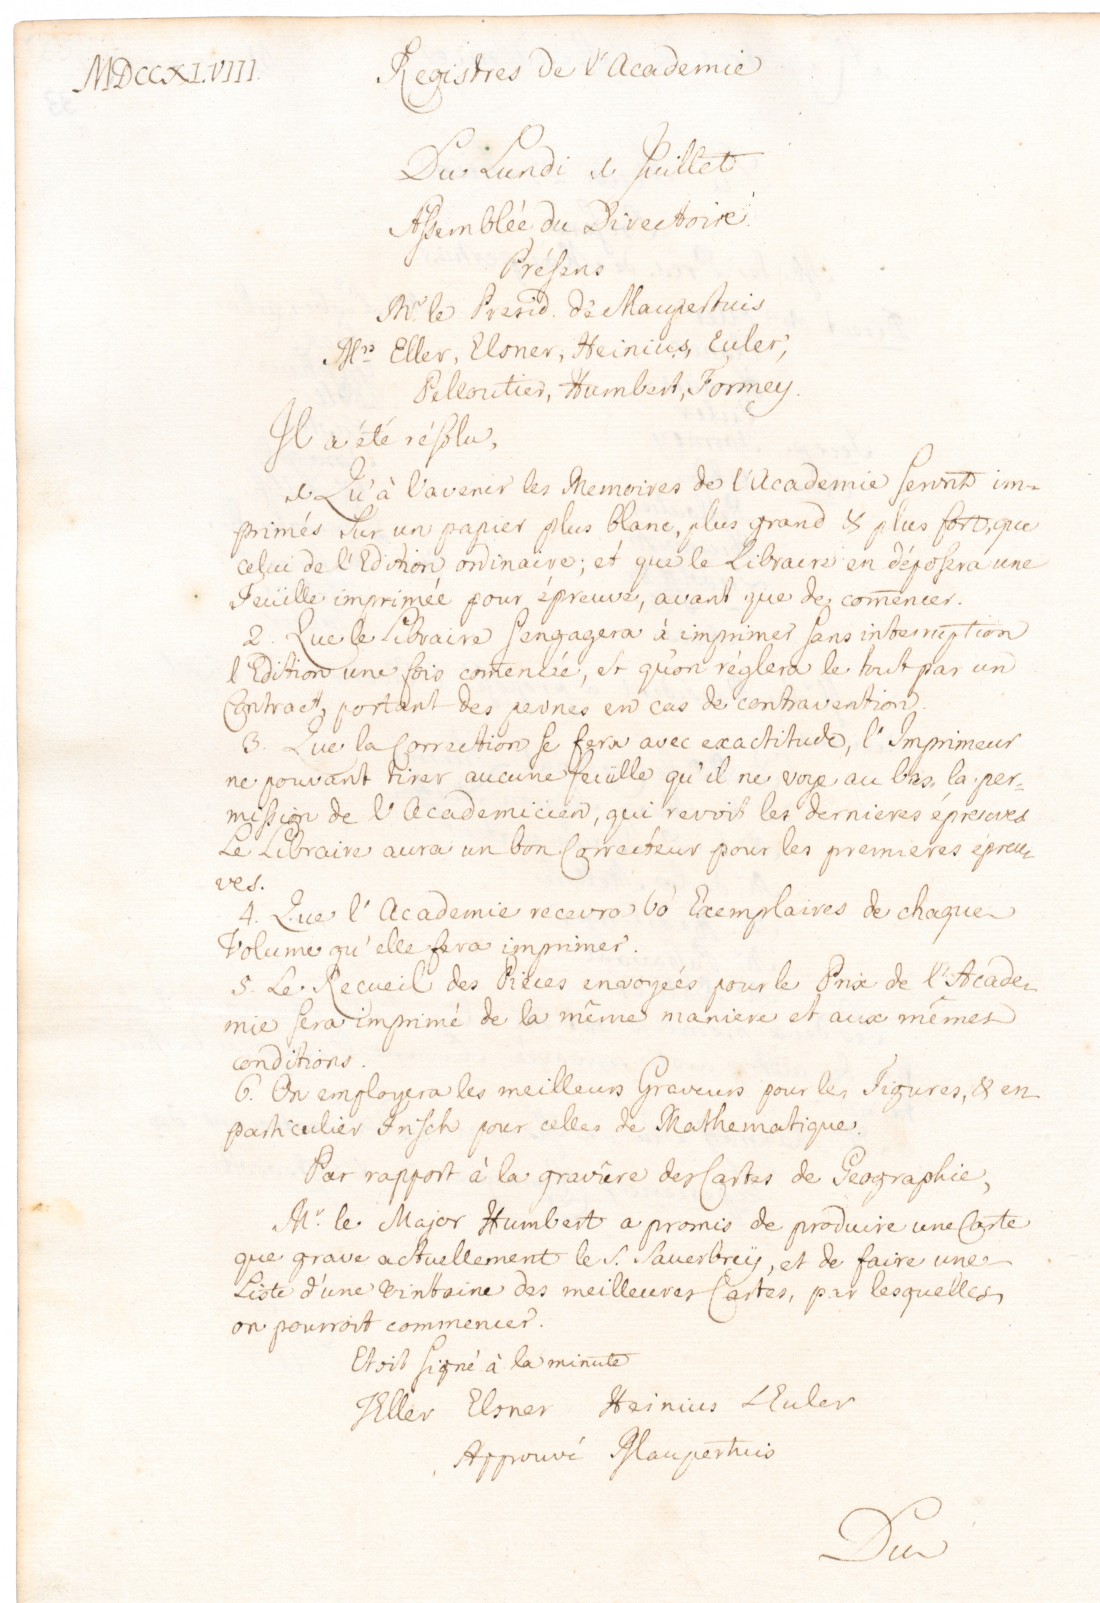 MDCCXLVIII.
Registres de l'Academie
Du Lundi 1 Juillet
Assemblée du Directoire.
Présens
Mr. le Presid. de Maupertuis
Mrs Eller, Elsner, Heinius, Euler,
Pelloutier, Humbert, Formey.
Il a été résolu,
1 Qu'à l'avenir les Memoires de l'Academie seront im-
primés sur un papier plus blanc, plus grand & plus fort, que
celui de l'Edition ordinaire; et que le Libraire en déposera une
Feüille imprimée pour épreuve, avant que de com̄encer.
2. Que le Libraire s'engagera à imprimer sans interruption
l'Edition une fois com̄encée, et qu'on réglera le tout par un
Contract, portant des peines en cas de contravention.
3. Que la Correction se fera avec exactitude, l'Imprimeur
ne pouvant tirer aucune feuille qu'il ne voye au bas la per-
mission de l'Academicien, qui revoit les dernieres épreuves
Le Libraire aura un bon Correcteur pour les premieres épreu-
ves.
4. Que l'Academie recevra 60 Exemplaires de chaque
Volume qu'elle fera imprimer.
5. Le Recueil des Pièces envoyées pour le Prix de l'Acade-
mie sera imprimé de la même maniere et aux mêmes
conditions.
6. On employera les meilleurs Graveurs pour les Figures, & en
particulier Frisch pour celles de Mathematique.
Par rapport à la gravûre des Cartes de Geographie,
Mr. le Major Humbert a promis de produire une Carte
que grave actuellement le S. Sauerbrey, et de faire une
Liste d'une vintaine des meilleures Cartes, par lesquelles
on pourroit commencer.
Etoit signé à la minute
JEller Elsner Heinius LEuler
Approuvé Maupertuis
Du